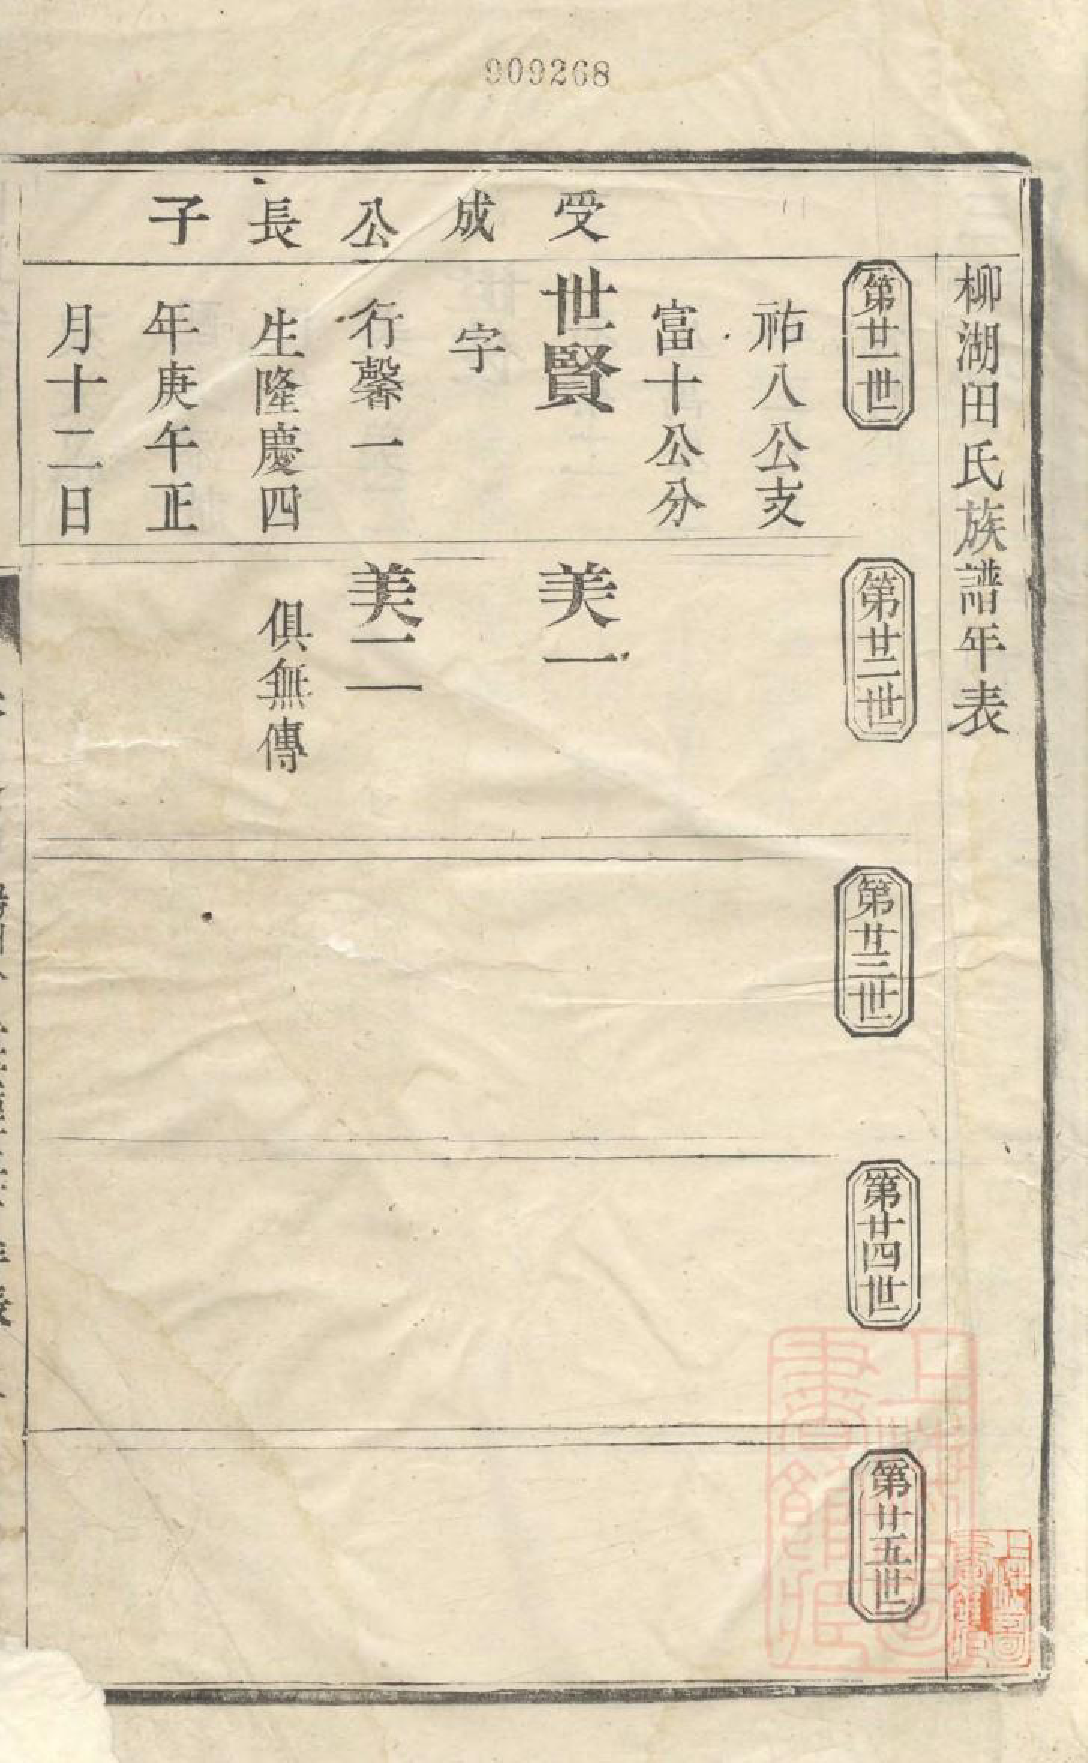 909268
柳湖田氏族譜年表
第廿一世
祐八公支
富十公分
受成公長子
世賢
字
行馨一
生隆慶四
年庚午正
月十二日
第廿二世
美一
美二
俱無傳
第廿三世
第廿四世
第廿五世
上海圖書館藏
上海圖書館藏